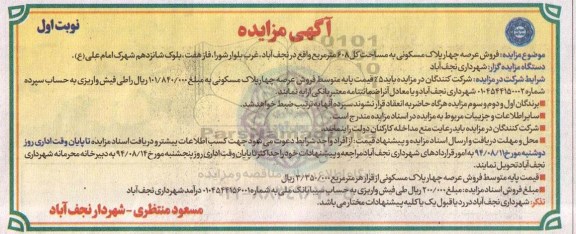 آگهی مزایده
نوبت اول
موضوع مزایده: فروش عرصه چهار پلاک مسکونی به مساحت کل ۶۰۸ مترمربع واقع در نجف‌آباد، غرب بلوار شورا، فاز هفت، بلوک شانزدهم شهرک امام علی (ع).
دستگاه مزایده گزار: شهرداری نجف‌آباد
شرایط شرکت در مزایده: شرکت کنندگان در مزایده باید ۵٪ قیمت پایه متوسط فروش عرصه چهار پلاک مسکونی به مبلغ ۱۰۱/۸۴۰/۰۰۰ ریال را طی فیش واریزی به حساب سپرده
شماره ۰۱۰۴۵۴۴۱۵۰۰۰۲ شهرداری نجف‌آباد و یا معادل آن را ضمانتنامه معتبر بانکی ارایه نمایند.
■ برندگان اول و دوم و سوم مزایده هرگاه حاضر به انعقاد قرارداد نشوند سپرده آنها به ترتیب ضبط خواهد شد.
■ سایر اطلاعات و جزییات مربوط به مزایده در اسناد مزایده مندرج است
■ شرکت کنندگان در مزایده باید رعایت منع مداخله کارکنان دولت را بنمایند.
■ محل و مهلت دریافت و ارسال اسناد مزایده و پیشنهاد قیمت: از افراد واجد شرایط دعوت می شود جهت کسب اطلاعات بیشتر و دریافت اسناد مزایده تا پایان وقت اداری روز
دوشنبه مورخ ۹۴/۰۸/۱۱ به امور قراردادهای شهرداری نجف‌آباد مراجعه و پیشنهادات خود را حداکثر تا پایان وقت اداری روز پنجشنبه مورخ ۹۴/۰۸/۱۴ به دبیرخانه محرمانه شهرداری
نجف‌آباد تحویل نمایند.
■ قیمت پایه متوسط فروش عرصه چهار پلاک مسکونی از قرار هر مترمربع ۳/۳۵۰/۰۰۰ ریال
■ مبلغ فروش اسناد مزایده: مبلغ ۲۰۰/۰۰۰ ریال طی فیش واریزی به حساب سیبا بانک ملی به شماره ۰۱۰۴۵۴۴۱۵۶۰۰۱ درآمد شهرداری نجف‌آباد
تذکر: شهرداری نجف‌آباد در رد یا قبول یک یا کلیه پیشنهادات مختار می باشد.
مسعود منتظری - شهردار نجف آباد